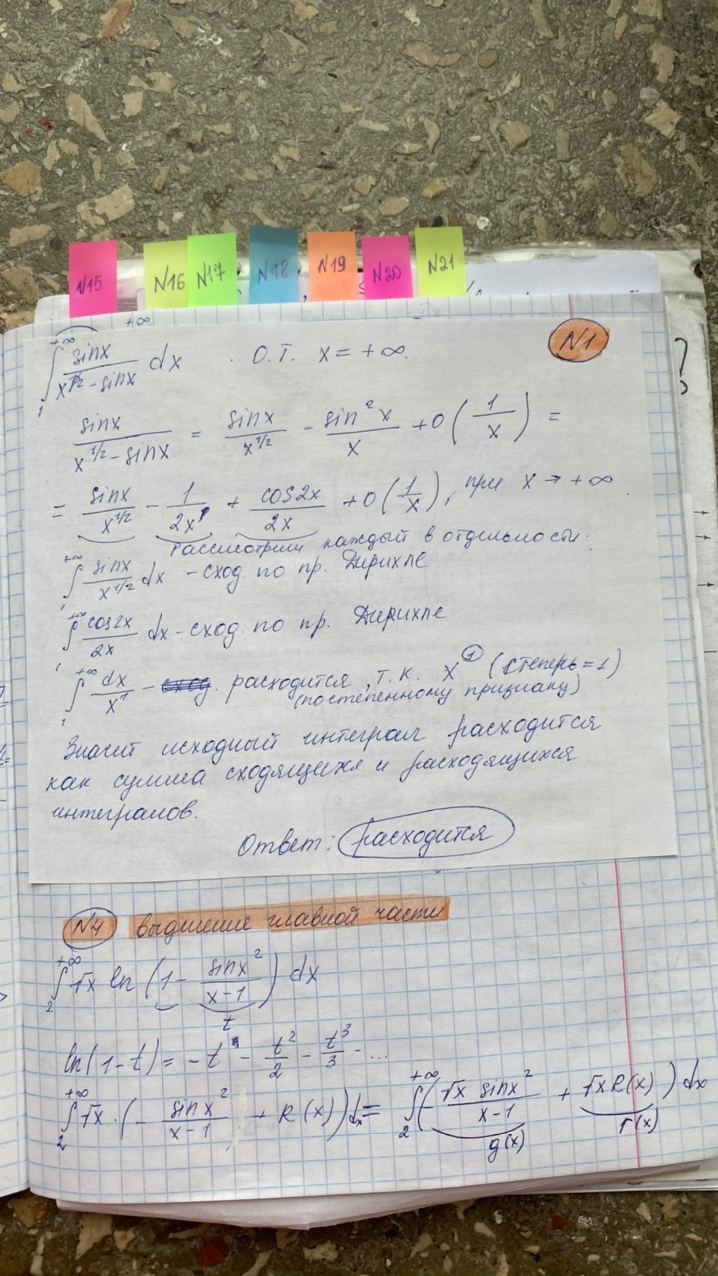 N15 N16 N17 N18 N19 N20 N21
N1
+∞
∫₁^{+∞} sinx / (x^{1/2} - sinx) dx . О.Т. x = +∞.
sinx / (x^{1/2} - sinx) = sinx / x^{1/2} - sin²x / x + o(1/x) =
= sinx / x^{1/2} - 1 / 2x¹ + cos2x / 2x + o(1/x), при x → +∞
Рассмотрим каждый в отдельности:
∫₁^{+∞} sinx / x^{1/2} dx - сход. по пр. Дирихле
∫₁^{+∞} cos2x / 2x dx - сход. по пр. Дирихле
∫₁^{+∞} dx / x¹ - расходится, т.к. x^① (степерь = 1)
(постепенному прициаку)
Значит исходный интеграл расходится
как сумма сходящихся и расходящихся
интегралов.
Ответ: расходится
N4 выделение главной части
∫₂^{+∞} √x ln (1 - sinx² / (x-1)) dx
t
ln(1-t) = -t - t²/2 - t³/3 - ...
∫₂^{+∞} √x · (- sinx² / (x-1) + R(x)) dx = ∫₂^{+∞} (- √x sinx² / (x-1) + √x R(x)) dx
g(x) r(x)